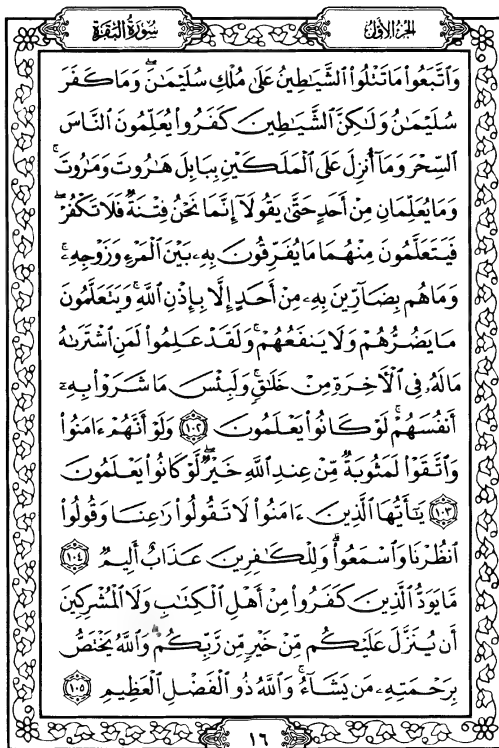 سُورَةُ البَقَرَة
الجُزءُ الأوّل
وَٱتَّبَعُوا۟ مَا تَتْلُوا۟ ٱلشَّيَٰطِينُ عَلَىٰ مُلْكِ سُلَيْمَٰنَ ۖ وَمَا كَفَرَ
سُلَيْمَٰنُ وَلَٰكِنَّ ٱلشَّيَٰطِينَ كَفَرُوا۟ يُعَلِّمُونَ ٱلنَّاسَ
ٱلسِّحْرَ وَمَآ أُنزِلَ عَلَى ٱلْمَلَكَيْنِ بِبَابِلَ هَٰرُوتَ وَمَٰرُوتَ ۚ
وَمَا يُعَلِّمَانِ مِنْ أَحَدٍ حَتَّىٰ يَقُولَآ إِنَّمَا نَحْنُ فِتْنَةٌ فَلَا تَكْفُرْ ۖ
فَيَتَعَلَّمُونَ مِنْهُمَا مَا يُفَرِّقُونَ بِهِۦ بَيْنَ ٱلْمَرْءِ وَزَوْجِهِۦ ۚ
وَمَا هُم بِضَآرِّينَ بِهِۦ مِنْ أَحَدٍ إِلَّا بِإِذْنِ ٱللَّهِ ۚ وَيَتَعَلَّمُونَ
مَا يَضُرُّهُمْ وَلَا يَنفَعُهُمْ ۚ وَلَقَدْ عَلِمُوا۟ لَمَنِ ٱشْتَرَىٰهُ
مَا لَهُۥ فِى ٱلْءَاخِرَةِ مِنْ خَلَٰقٍ ۚ وَلَبِئْسَ مَا شَرَوْا۟ بِهِۦٓ
أَنفُسَهُمْ ۚ لَوْ كَانُوا۟ يَعْلَمُونَ ١٠٢ وَلَوْ أَنَّهُمْ ءَامَنُوا۟
وَٱتَّقَوْا۟ لَمَثُوبَةٌ مِّنْ عِندِ ٱللَّهِ خَيْرٌ ۖ لَّوْ كَانُوا۟ يَعْلَمُونَ
١٠٣ يَٰٓأَيُّهَا ٱلَّذِينَ ءَامَنُوا۟ لَا تَقُولُوا۟ رَٰعِنَا وَقُولُوا۟
ٱنظُرْنَا وَٱسْمَعُوا۟ ۗ وَلِلْكَٰفِرِينَ عَذَابٌ أَلِيمٌ ١٠٤
مَّا يَوَدُّ ٱلَّذِينَ كَفَرُوا۟ مِنْ أَهْلِ ٱلْكِتَٰبِ وَلَا ٱلْمُشْرِكِينَ
أَن يُنَزَّلَ عَلَيْكُم مِّنْ خَيْرٍ مِّن رَّبِّكُمْ ۗ وَٱللَّهُ يَخْتَصُّ
بِرَحْمَتِهِۦ مَن يَشَآءُ ۚ وَٱللَّهُ ذُو ٱلْفَضْلِ ٱلْعَظِيمِ ١٠٥
١٦